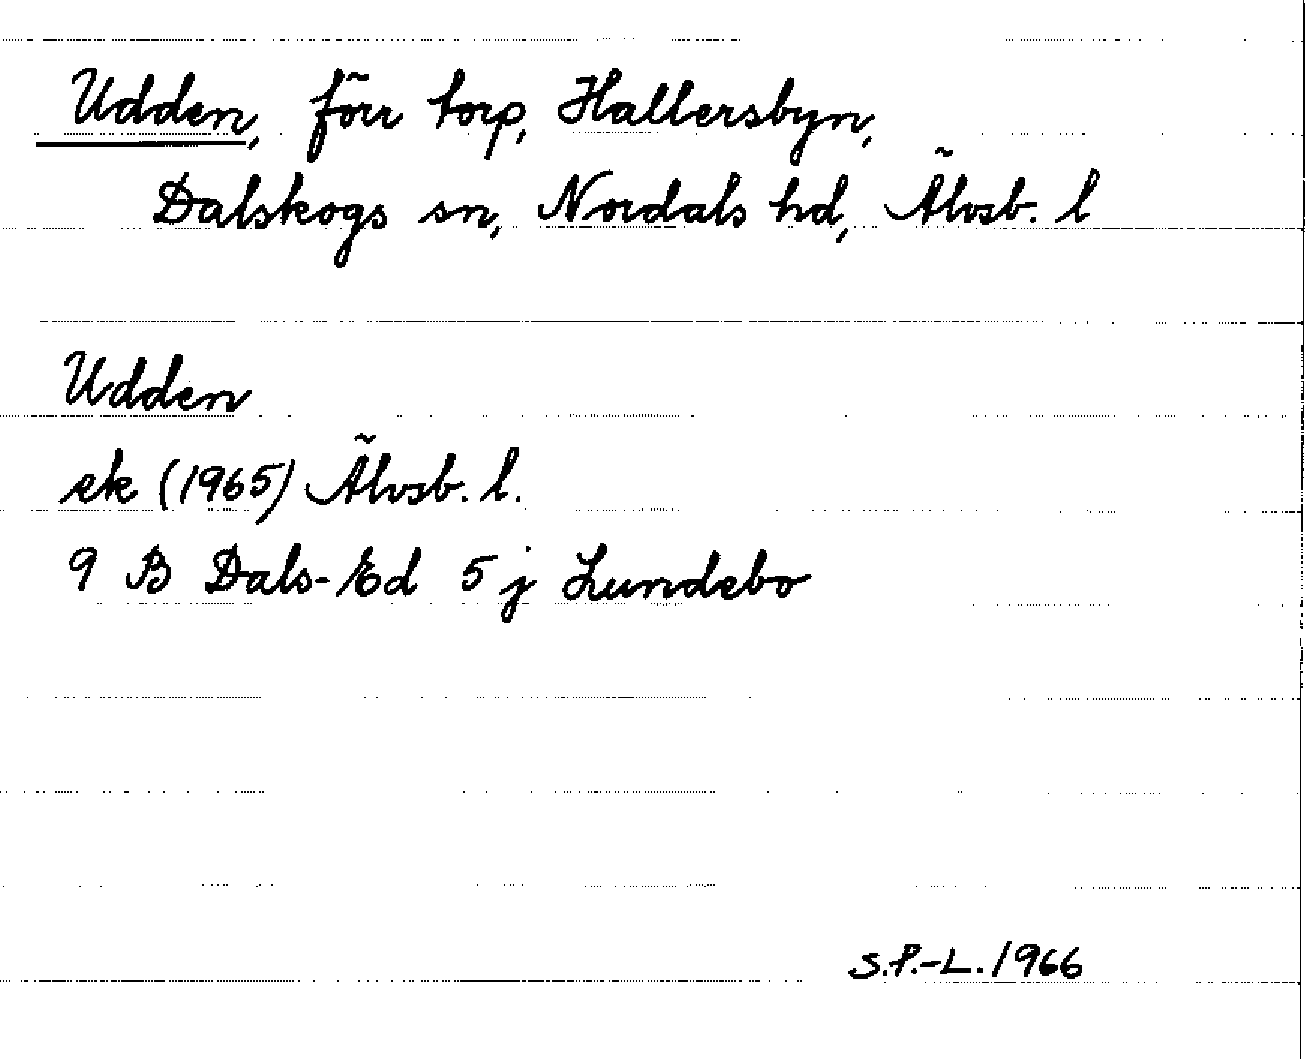 Udden, förr torp, Hallersbyn,
Dalskogs sn, Nordals hd, Älvsb. l
Udden
ek (1965) Älvsb. l.
9 B Dals-Ed 5 j Lundebo
S.P.-L. 1966